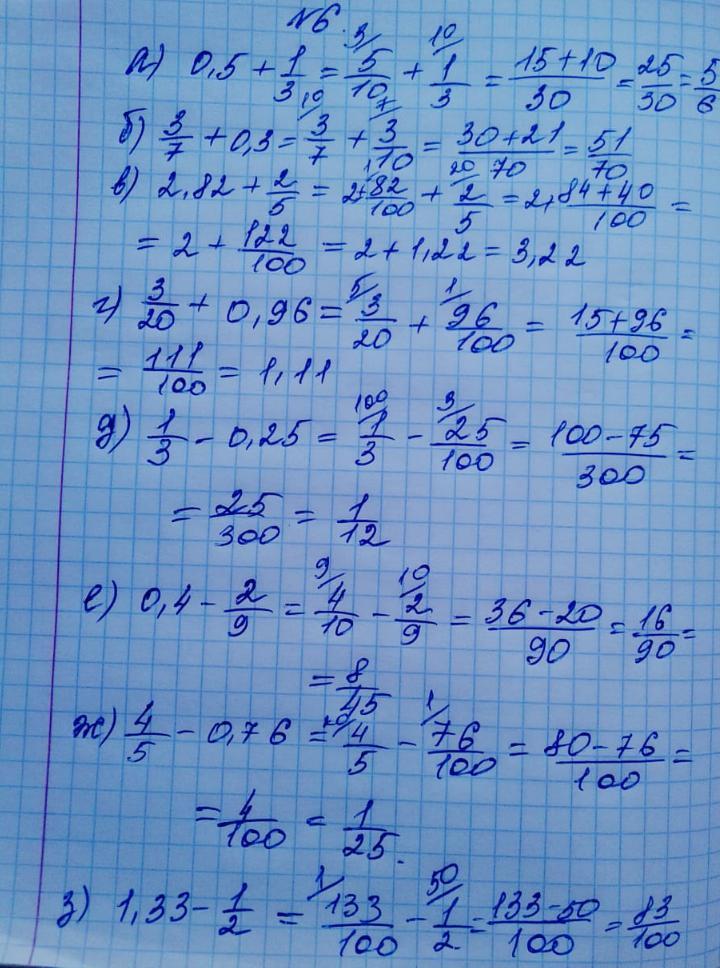 №6.
а) 0,5 + 1/3 = ³⁄ 5/10 + ¹⁰⁄ 1/3 = (15+10)/30 = 25/30 = 5/6
б) 3/7 + 0,3 = ¹⁰⁄ 3/7 + ⁷⁄ 3/10 = (30+21)/70 = 51/70
в) 2,82 + 2/5 = 2 + ¹⁄ 82/100 + ²⁰⁄ 2/5 = 2 + (84+40)/100 =
= 2 + 122/100 = 2 + 1,22 = 3,22
г) 3/20 + 0,96 = ⁵⁄ 3/20 + ¹⁄ 96/100 = (15+96)/100 =
= 111/100 = 1,11
д) 1/3 - 0,25 = ¹⁰⁰⁄ 1/3 - ³⁄ 25/100 = (100-75)/300 =
= 25/300 = 1/12
е) 0,4 - 2/9 = ⁹⁄ 4/10 - ¹⁰⁄ 2/9 = (36-20)/90 = 16/90 =
= 8/45
ж) 4/5 - 0,76 = ²⁰⁄ 4/5 - ¹⁄ 76/100 = (80-76)/100 =
= 4/100 = 1/25.
з) 1,33 - 1/2 = ¹⁄ 133/100 - ⁵⁰⁄ 1/2 = (133-50)/100 = 83/100